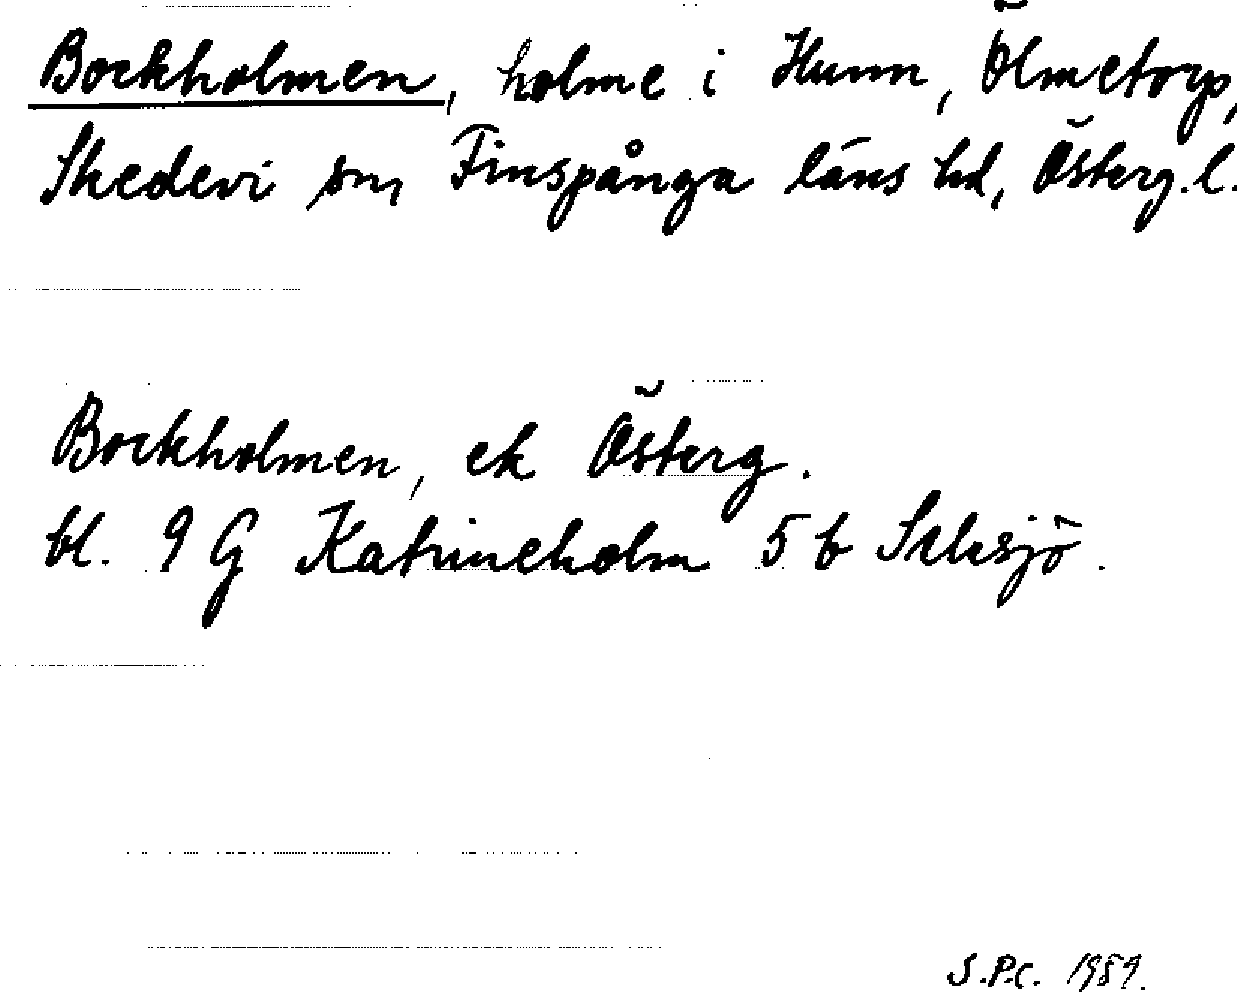 Bockholmen, holme i Hunn, Ölmetorp,
Skedevi sn, Finspånga läns hd, Österg.l.
Bockholmen, ek Österg.
bl. 9 G Katrineholm 5 b
S.P.C. 1989.